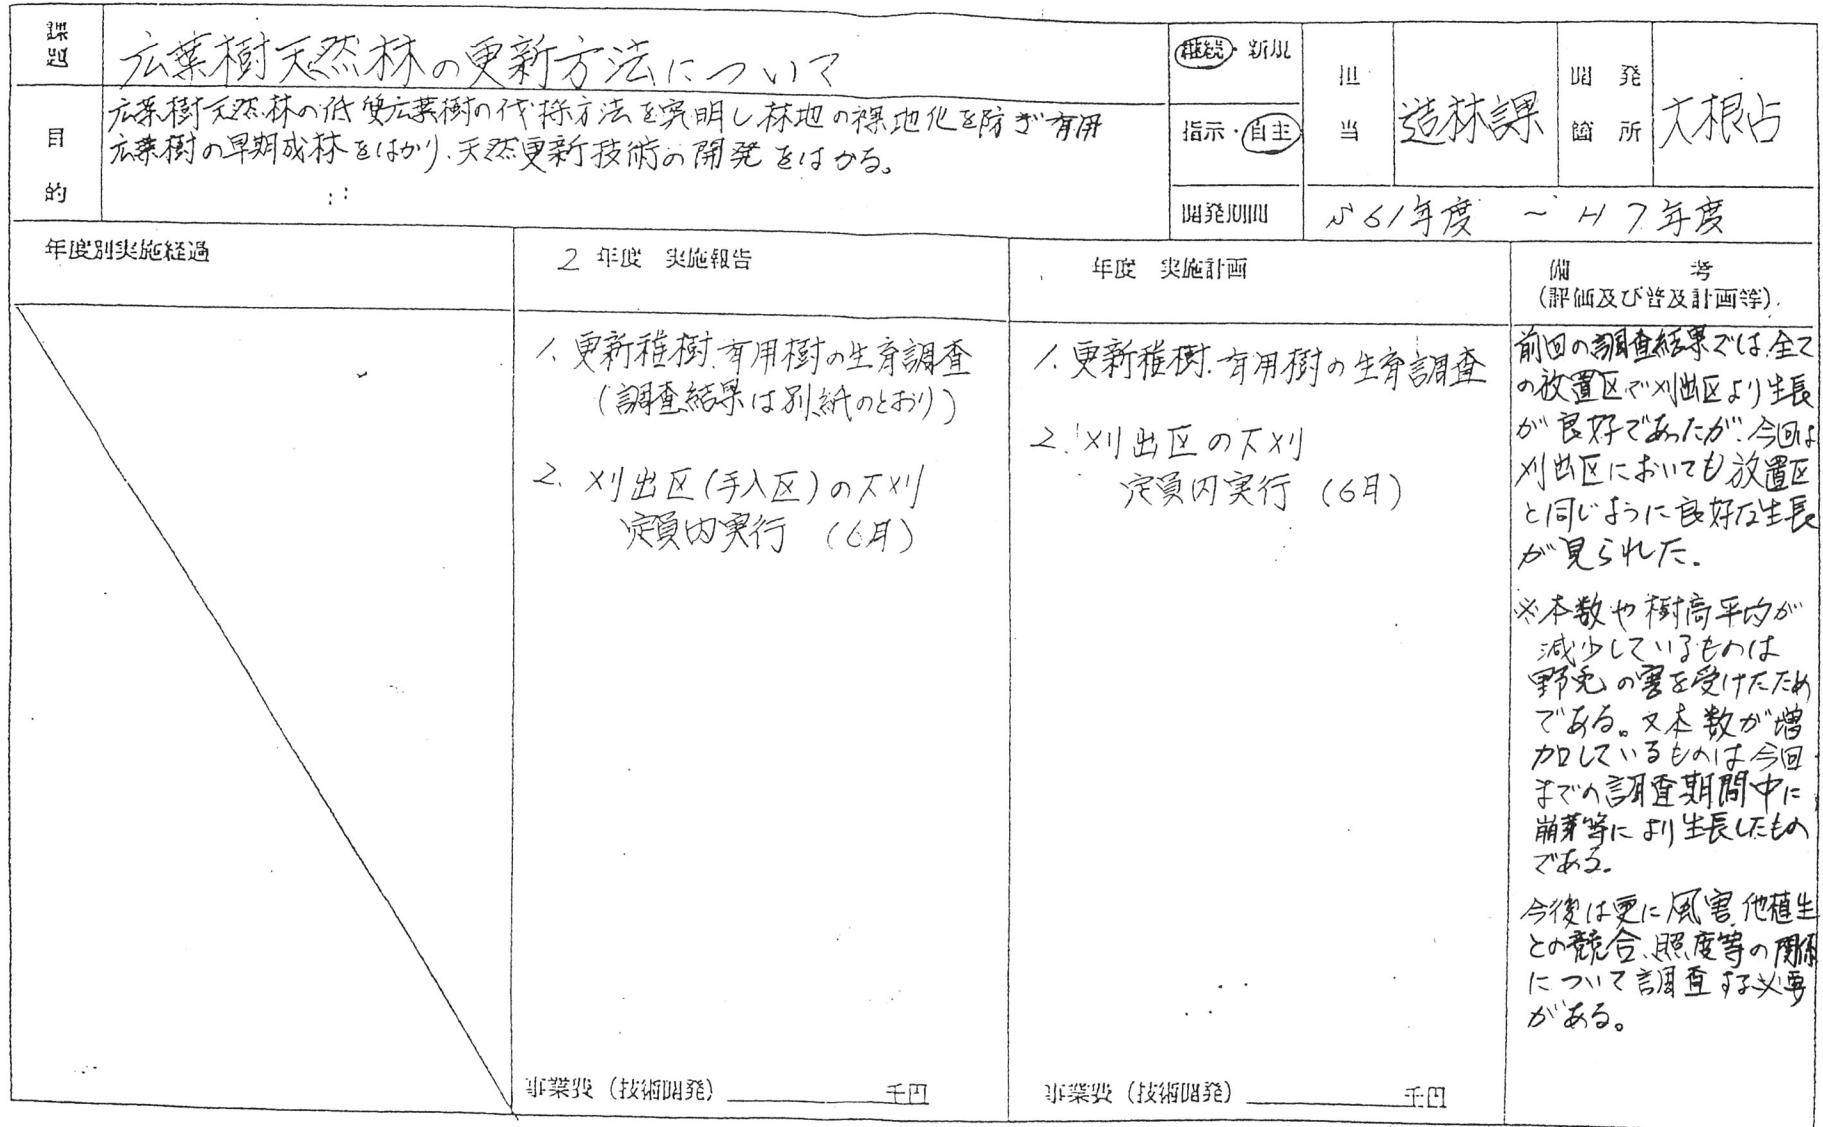 課題
広葉樹天然林の更新方法について
継続・新規
指示・自主
担当
造林課
開発箇所
大根占
目的
広葉樹天然林の低質広葉樹の伐採方法を究明し林地の裸地化を防ぎ有用
広葉樹の早期成林をはかり、天然更新技術の開発をはかる。
開発期間
S61年度 ～ H7年度
年度別実施経過
2 年度 実施報告
年度 実施計画
備考
(評価及び普及計画等)
1. 更新稚樹.有用樹の生育調査
(調査結果は別紙のとおり)
2. 刈出区(手入区)の下刈
定員内実行 (6月)
事業費(技術開発) 千円
1. 更新稚樹.有用樹の生育調査
2. 刈出区の下刈
定員内実行 (6月)
事業費(技術開発) 千円
前回の調査結果では、全て
の放置区で刈出区より生長
が良好であったが、今回は
刈出区においても放置区
と同じように良好な生長
が見られた。
※本数や樹高平均が
減少しているものは
野兎の害を受けたため
である。又本数が増
加しているものは今回
までの調査期間中に
崩芽等により生長したもの
である。
今後は更に風害、他植生
との競合、照度等の関係
について調査する必要
がある。